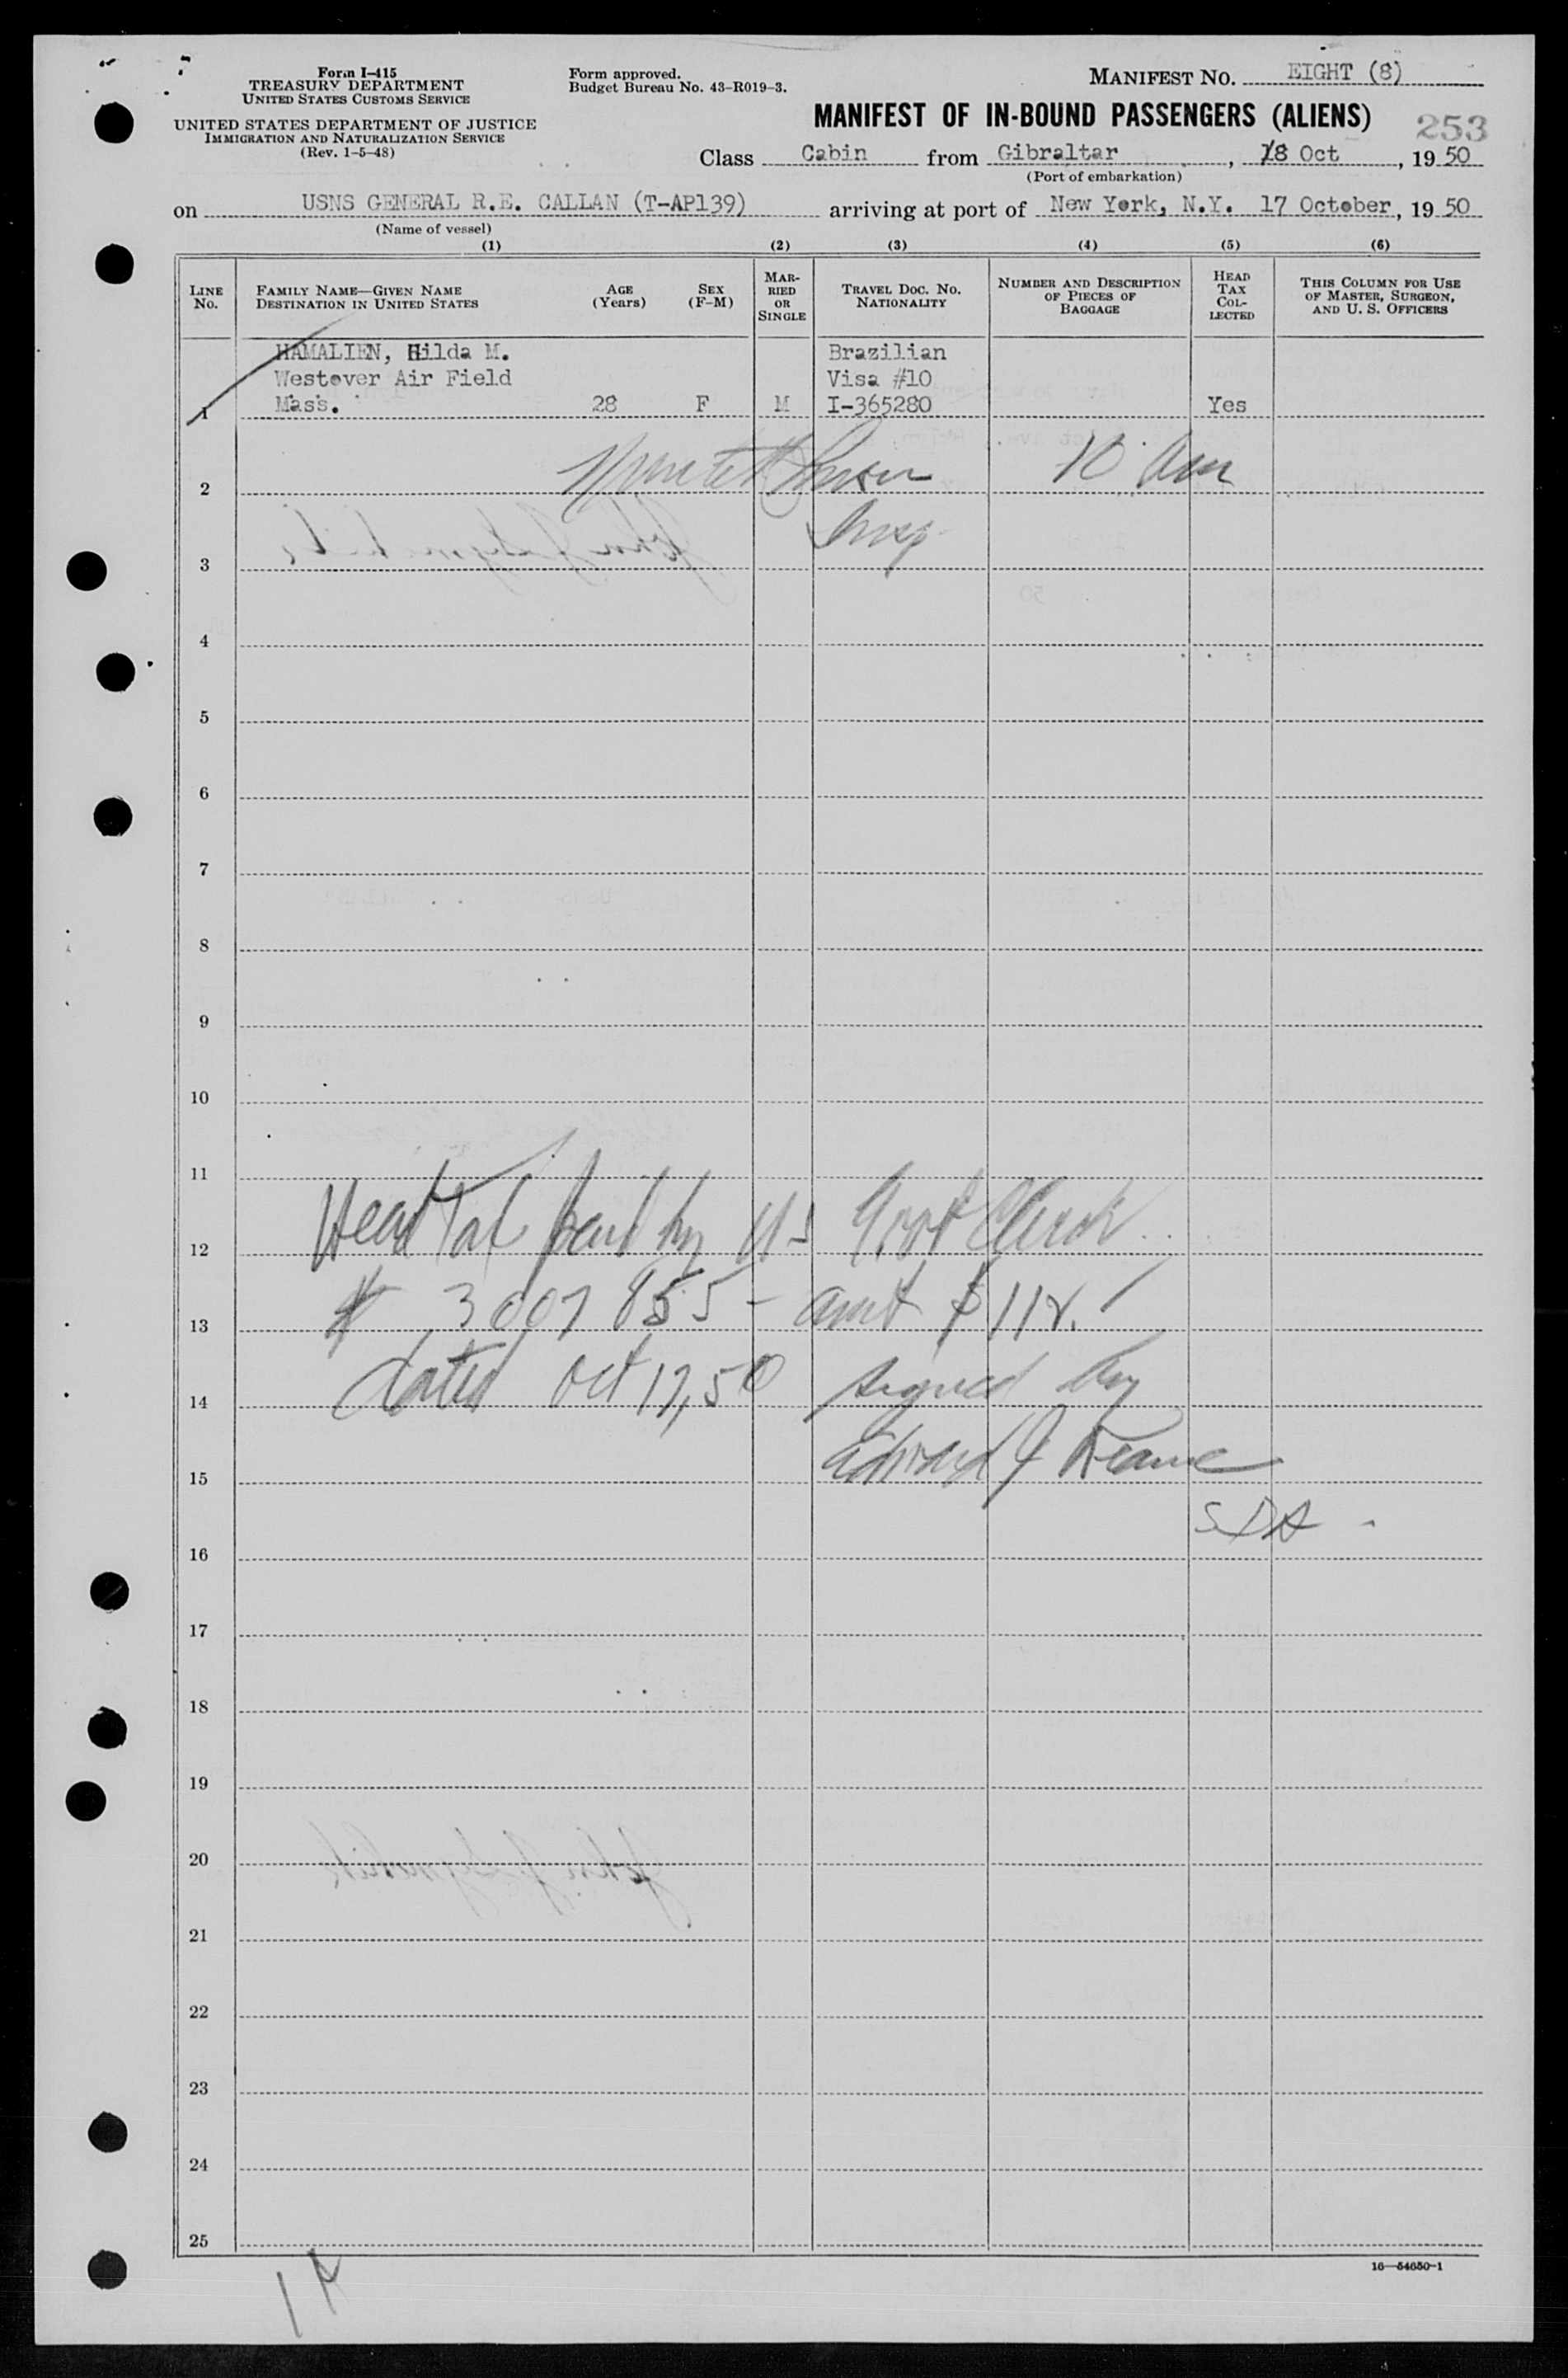 Form I-415
TREASURY DEPARTMENT
UNITED STATES CUSTOMS SERVICE
UNITED STATES DEPARTMENT OF JUSTICE
IMMIGRATION AND NATURALIZATION SERVICE
(Rev. 1-5-48)
Form approved.
Budget Bureau No. 43-R019-3.
MANIFEST NO. EIGHT (8)
MANIFEST OF IN-BOUND PASSENGERS (ALIENS)
253
Class Cabin from Gibraltar, 8 Oct, 1950
(Port of embarkation)
on USNS GENERAL R.E. CALLAN (T-AP139) arriving at port of New York, N.Y. 17 October, 1950
(Name of vessel)
(1) (2) (3) (4) (5) (6)
LINE No.
FAMILY NAME—GIVEN NAME
DESTINATION IN UNITED STATES
AGE (Years)
SEX (F-M)
MARRIED OR SINGLE
TRAVEL DOC. NO.
NATIONALITY
NUMBER AND DESCRIPTION OF PIECES OF BAGGAGE
HEAD TAX COLLECTED
THIS COLUMN FOR USE OF MASTER, SURGEON, AND U. S. OFFICERS
HAMALIEN, Hilda M. Brazilian
Westover Air Field Visa #10
1 Mass. 28 F M I-365280 Yes
2 10 Am
3 Insp
4
5
6
7
8
9
10
11
12 Head Tax paid by US Govt Check
13 # 3007855 - amt $112.
14 dated Oct 17, 50 signed by
15 Edward J Keane
16
17
18
19
20
21
22
23
24
25
16—54650-1